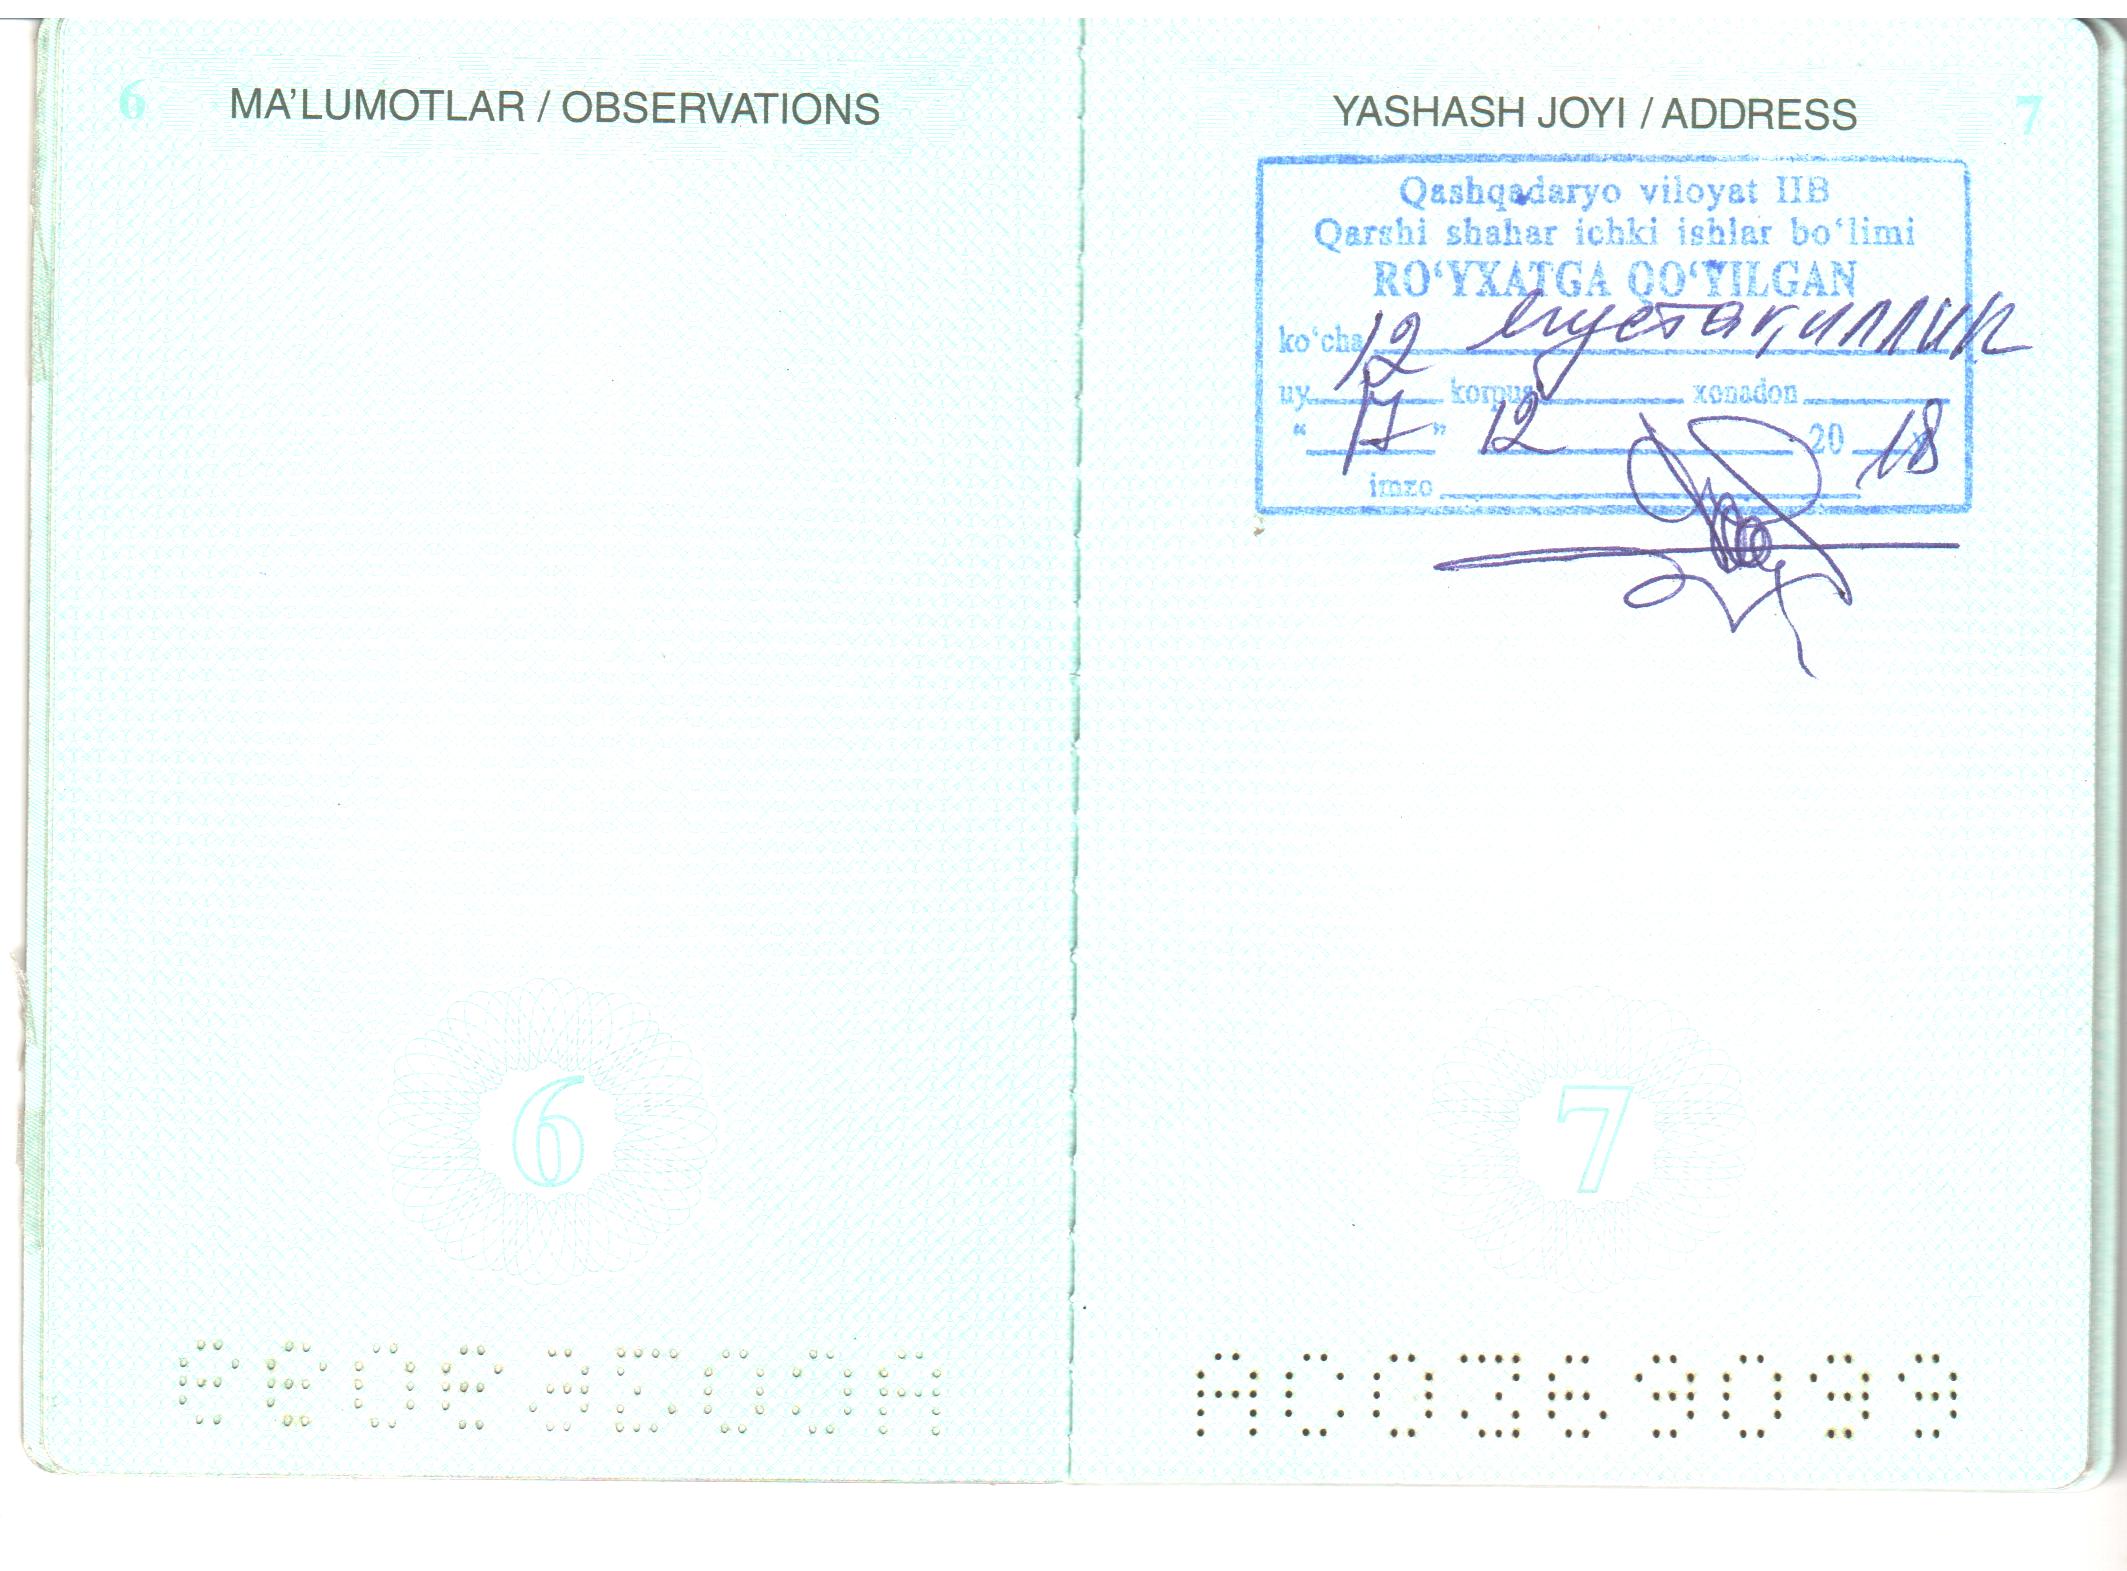 6
MA'LUMOTLAR / OBSERVATIONS
6
YASHASH JOYI / ADDRESS
7
Qashqadaryo viloyat IIB
Qarshi shahar ichki ishlar bo‘limi
RO‘YXATGA QO‘YILGAN
ko‘cha Мустақиллик
uy 12 korpus xonadon
“ 17 ” 12 20 18
imzo
7
AC0369099